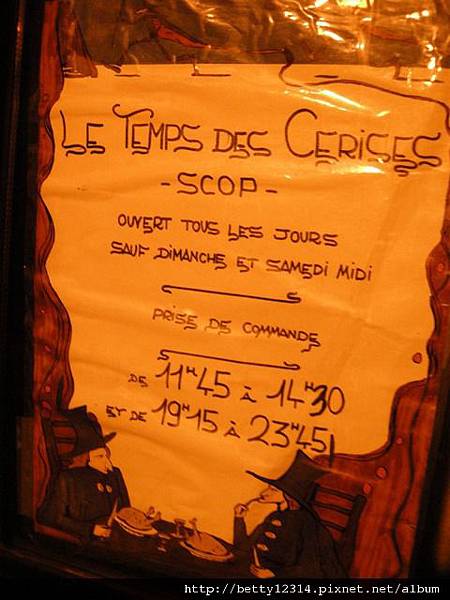 Le Temps des Cerises
- SCOP -
OUVERT TOUS LES JOURS
SAUF DIMANCHE ET SAMEDI MIDI
PRISE DE COMMANDE
DE 11H45 à 14H30
ET DE 19H15 à 23H45
http://betty12314.pixnet.net/album